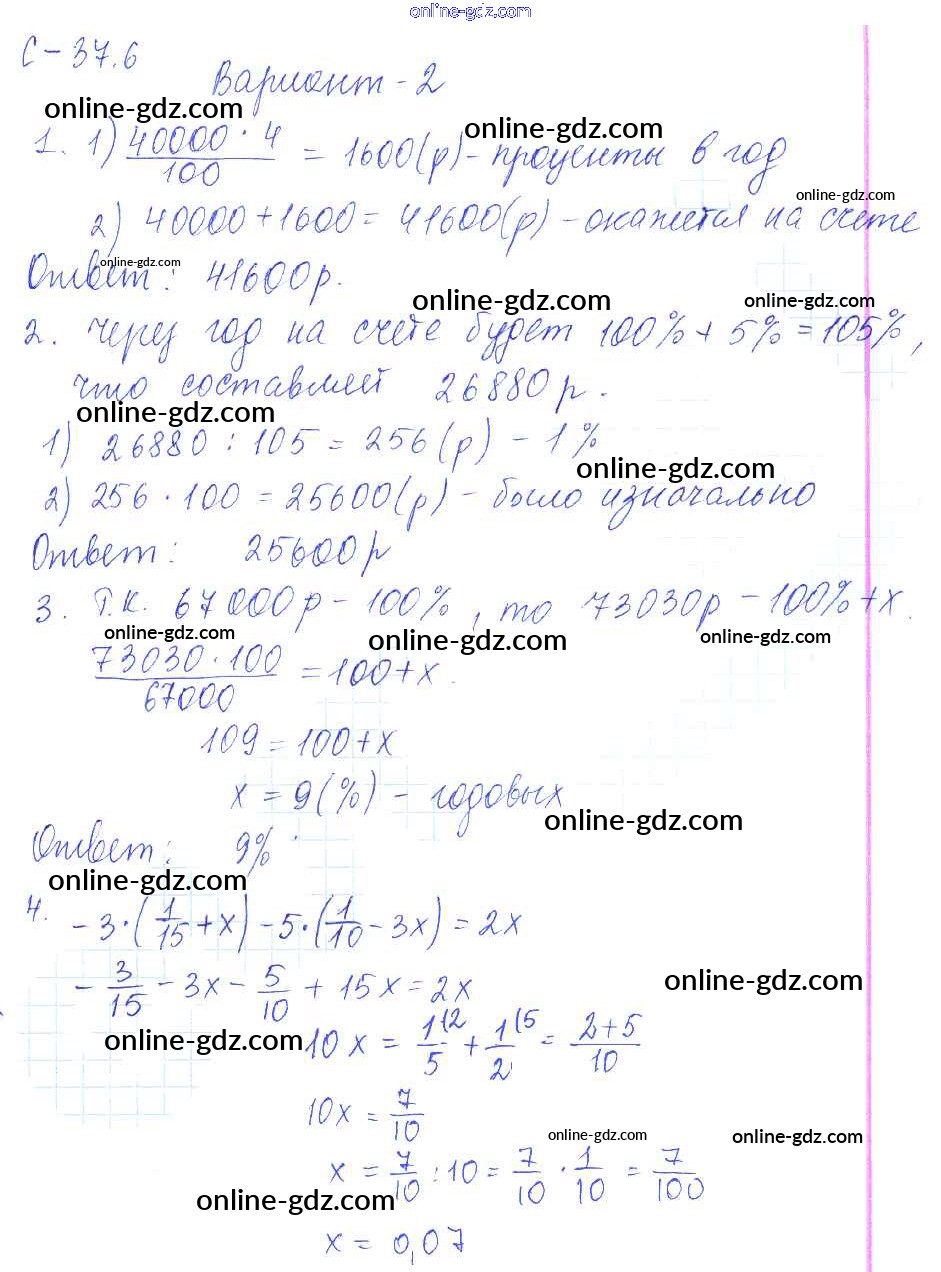 online-gdz.com
С-37.6
Вариант-2
online-gdz.com
online-gdz.com
1. 1) 40000·4/100 = 1600(р)-проценты в год
online-gdz.com
2) 40000+1600=41600(р)-окажется на счете
online-gdz.com
Ответ: 41600р.
online-gdz.com
online-gdz.com
2. Через год на счете будет 100%+5%=105%,
что составляет 26880р.
online-gdz.com
1) 26880:105=256(р)-1%
online-gdz.com
2) 256·100=25600(р)-было изначально
Ответ: 25600р
3. Т.К. 67000р-100%, то 73030р-100%+х.
online-gdz.com
online-gdz.com
online-gdz.com
73030·100/67000 = 100+х.
109=100+х
х=9(%)-годовых
online-gdz.com
Ответ: 9%
online-gdz.com
4. -3·(1/15+х)-5·(1/10-3х)=2х
-3/15-3х-5/10+15х=2х
online-gdz.com
online-gdz.com
10х=1(2/5+1(5/2=2+5/10
10х=7/10
online-gdz.com
online-gdz.com
х=7/10:10=7/10·1/10=7/100
online-gdz.com
х=0,07